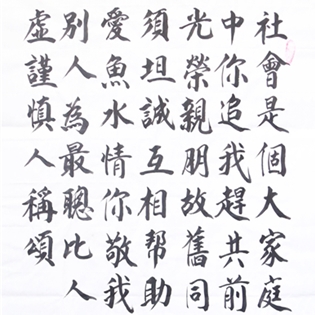 社會是個大家庭
中你追我趕共前
光榮親朋故舊同
須坦誠互相幫助
愛魚水情你敬我
別人為最聰比人
虛謹慎人稱頌